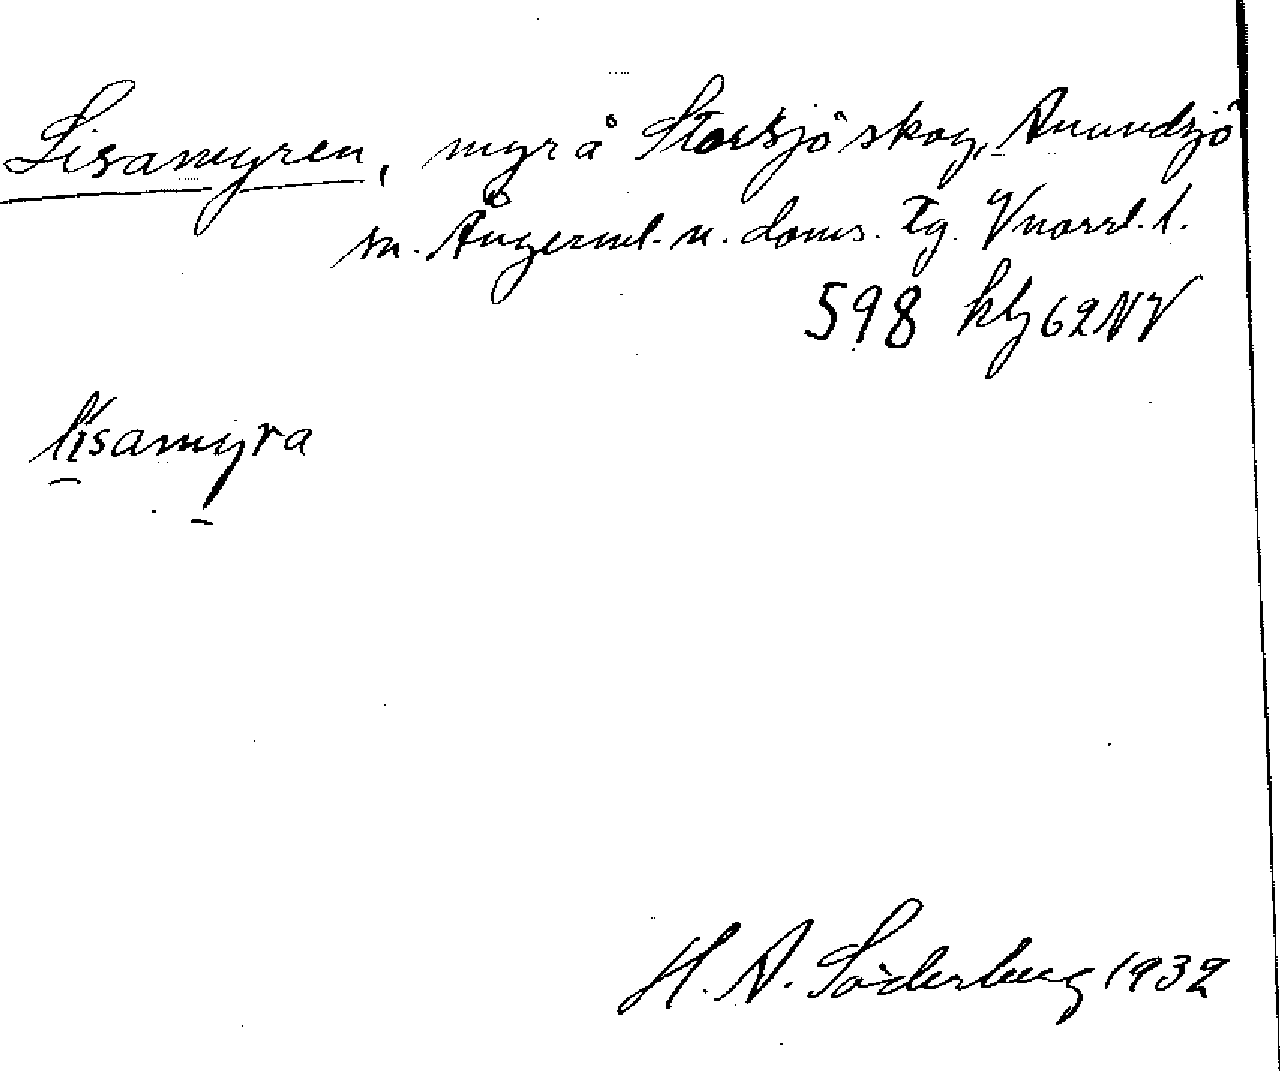 Lisamyren, myr å Storsjö skog, Anundsjö
sn. Ångerml. n. doms. tg. Vnorrl. l.
598 kbl 62 NV
lisamyra
H. A. Söderberg 1932